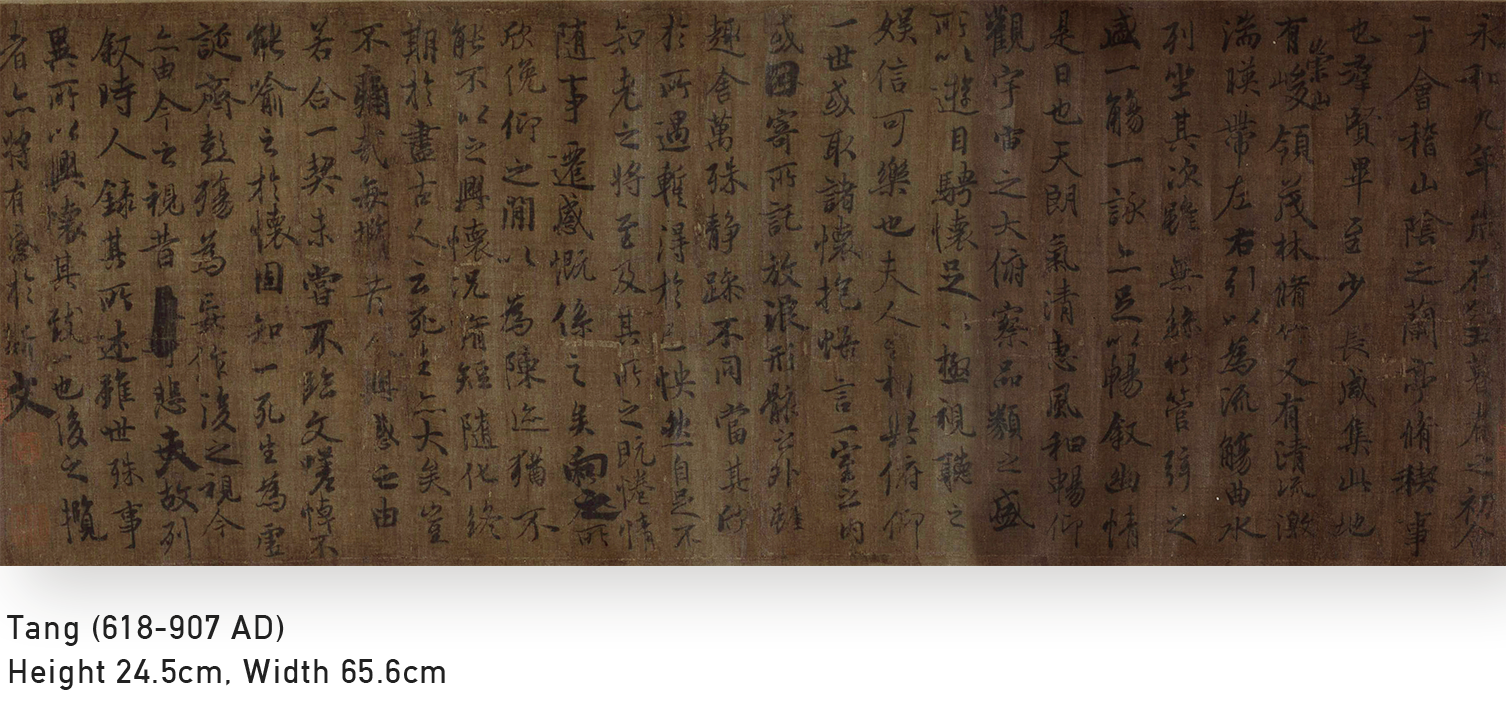 永和九年歲在癸丑暮春之初會
于會稽山陰之蘭亭脩稧事
也羣賢畢至少長咸集此地
有崇山峻領茂林脩竹又有清流激
湍暎帶左右引以為流觴曲水
列坐其次雖無絲竹管弦之
盛一觴一詠亦足以暢叙幽情
是日也天朗氣清惠風和暢仰
觀宇宙之大俯察品類之盛
所以遊目騁懷足以極視聽之
娛信可樂也夫人之相與俯仰
一世或取諸懷抱悟言一室之內
或因寄所託放浪形骸之外雖
趣舍萬殊靜躁不同當其欣
於所遇蹔得於己怏然自足不
知老之將至及其所之既惓情
隨事遷感慨係之矣向之所
欣俛仰之閒以為陳迹猶不
能不以之興懷況脩短隨化終
期於盡古人云死生亦大矣豈
不痛哉每攬昔人興感之由
若合一契未嘗不臨文嗟悼不
能喻之於懷固知一死生為虛
誕齊彭殤為妄作後之視今
亦由今之視昔悲夫故列
叙時人錄其所述雖世殊事
異所以興懷其致一也後之攬
者亦將有感於斯文
Tang (618-907 AD)
Height 24.5cm, Width 65.6cm